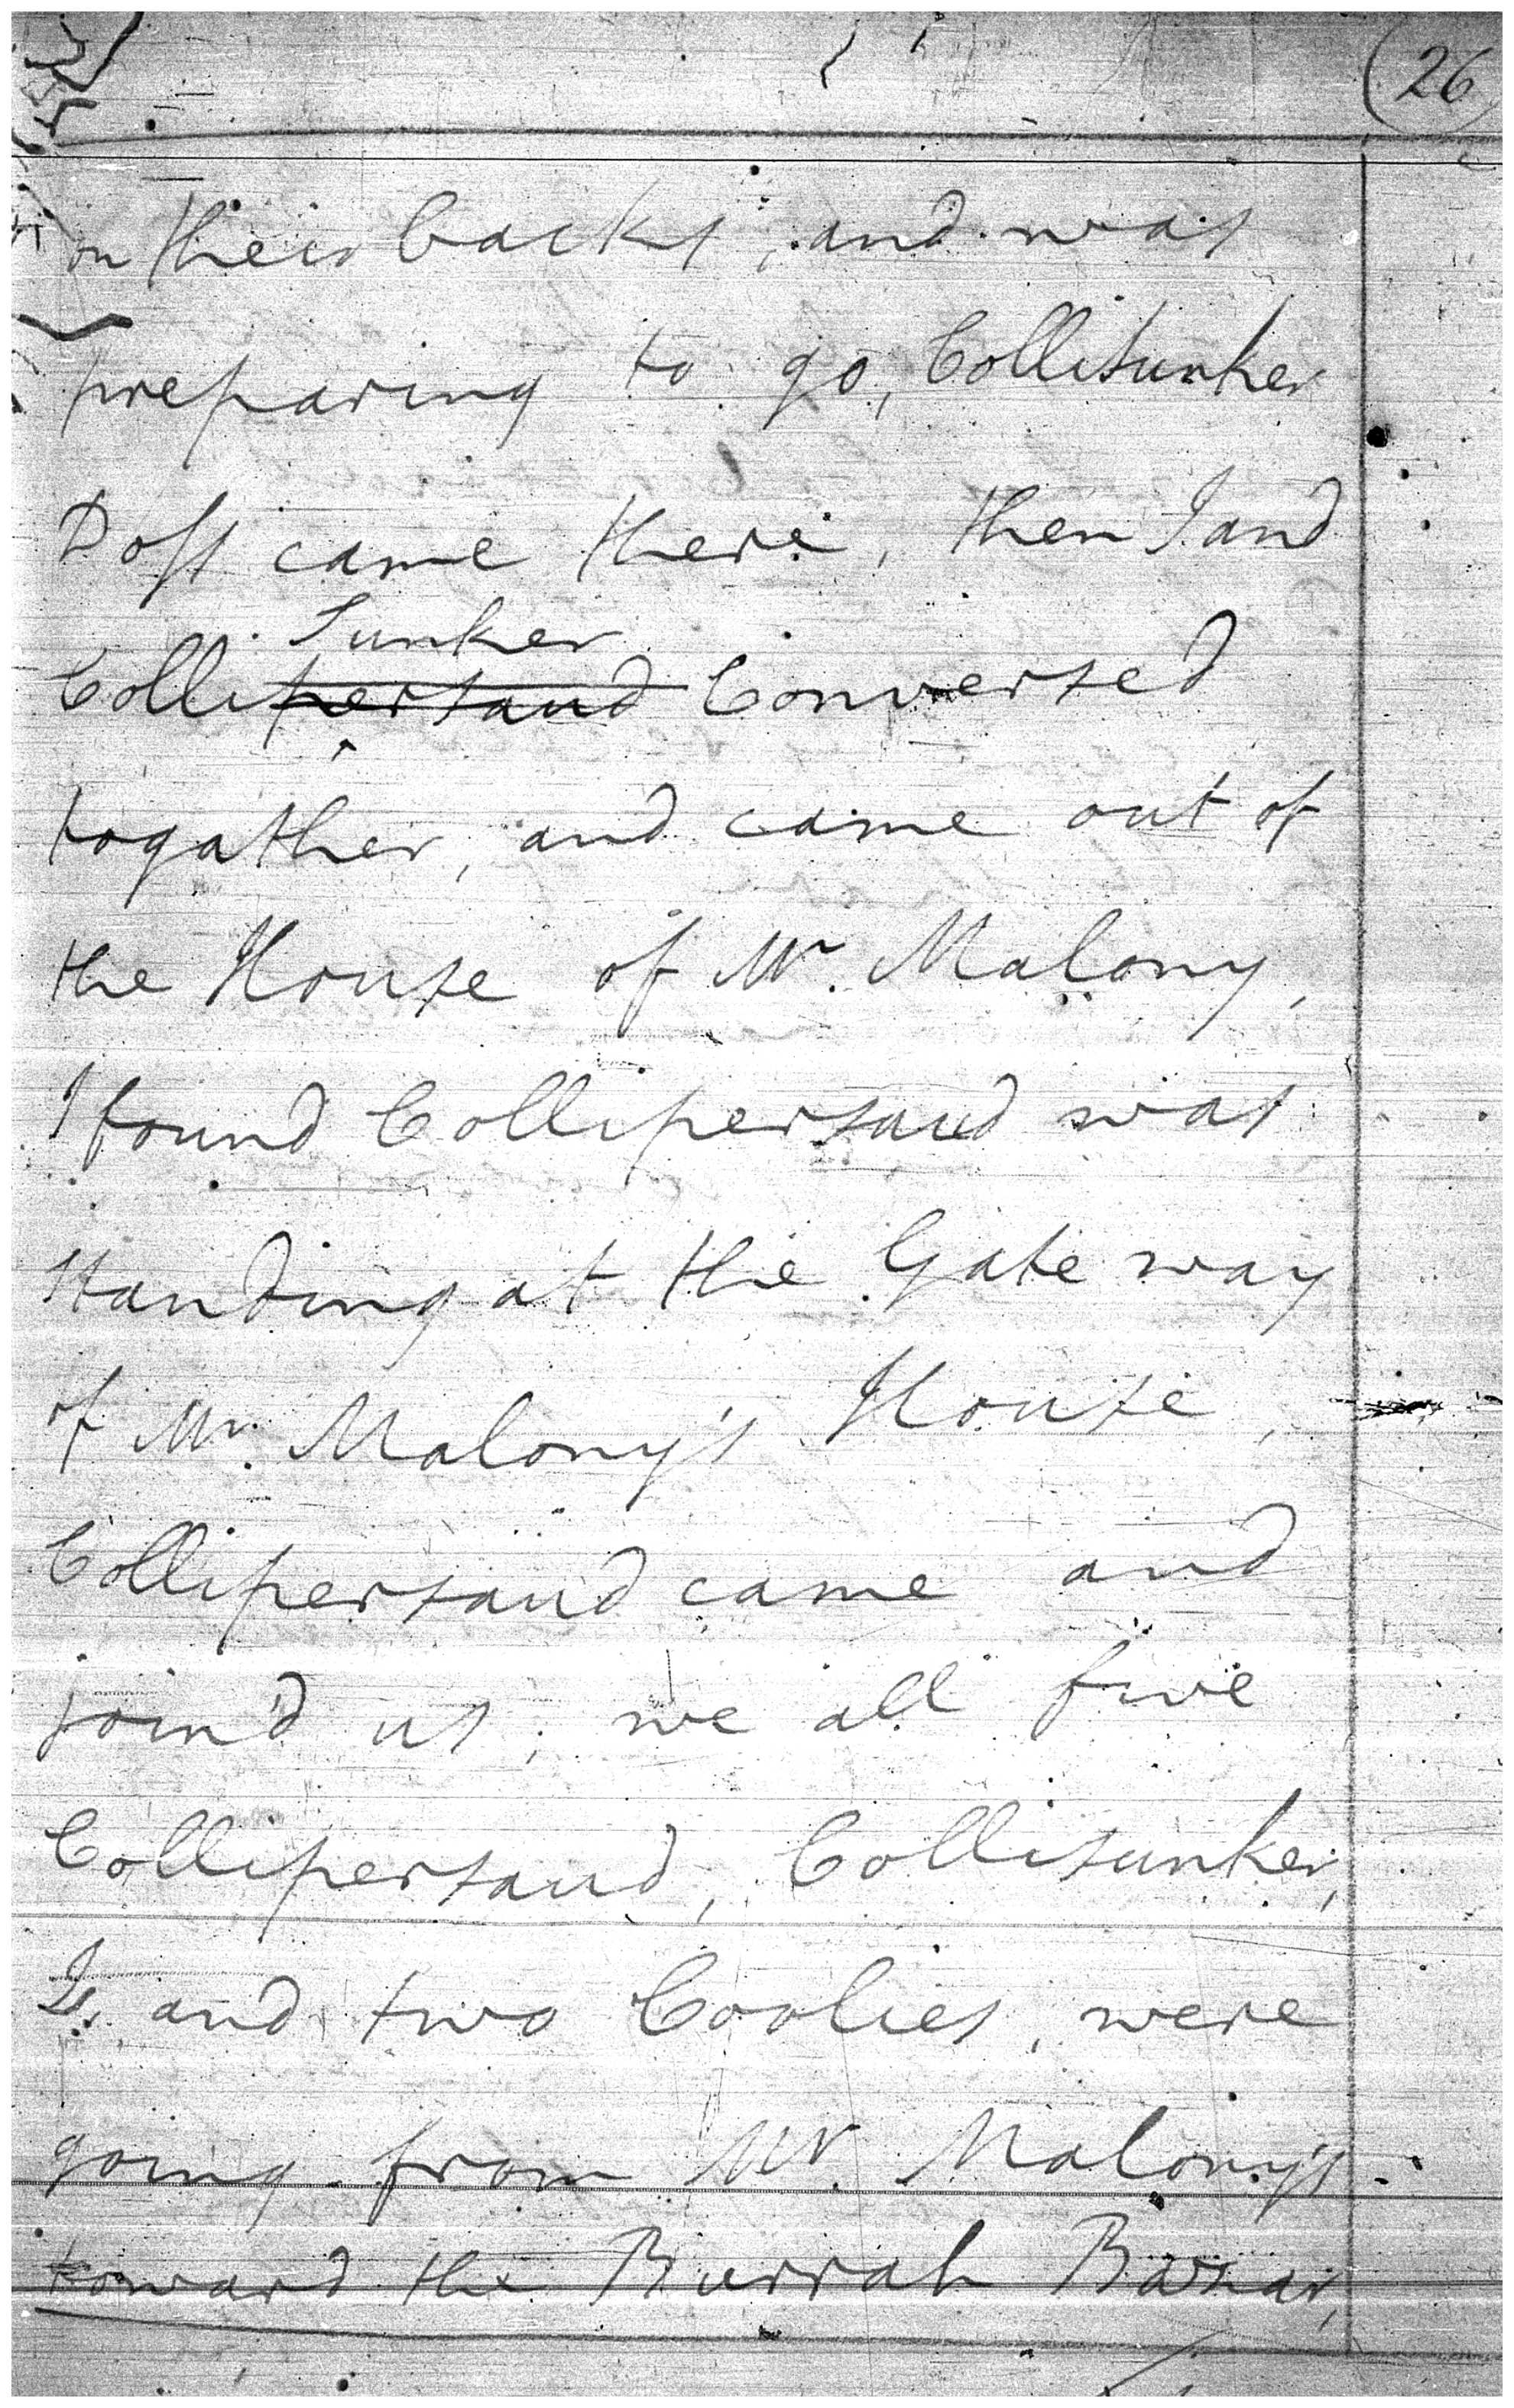 26
on their backs, and was
preparing to go, Collisunker
Doss came there, then I and
Sunker
Collipersaud Conversed
togather, and came out of
the House of Mr. Malony,
I found Collipersaud was
standing at the Gate way
of Mr. Malony's House,
Collipersaud came and
join'd us, we all five
Collipersaud, Collisunker,
I, and two Coolies, were
going from Mr. Malony's
toward the Burrah Bazar,